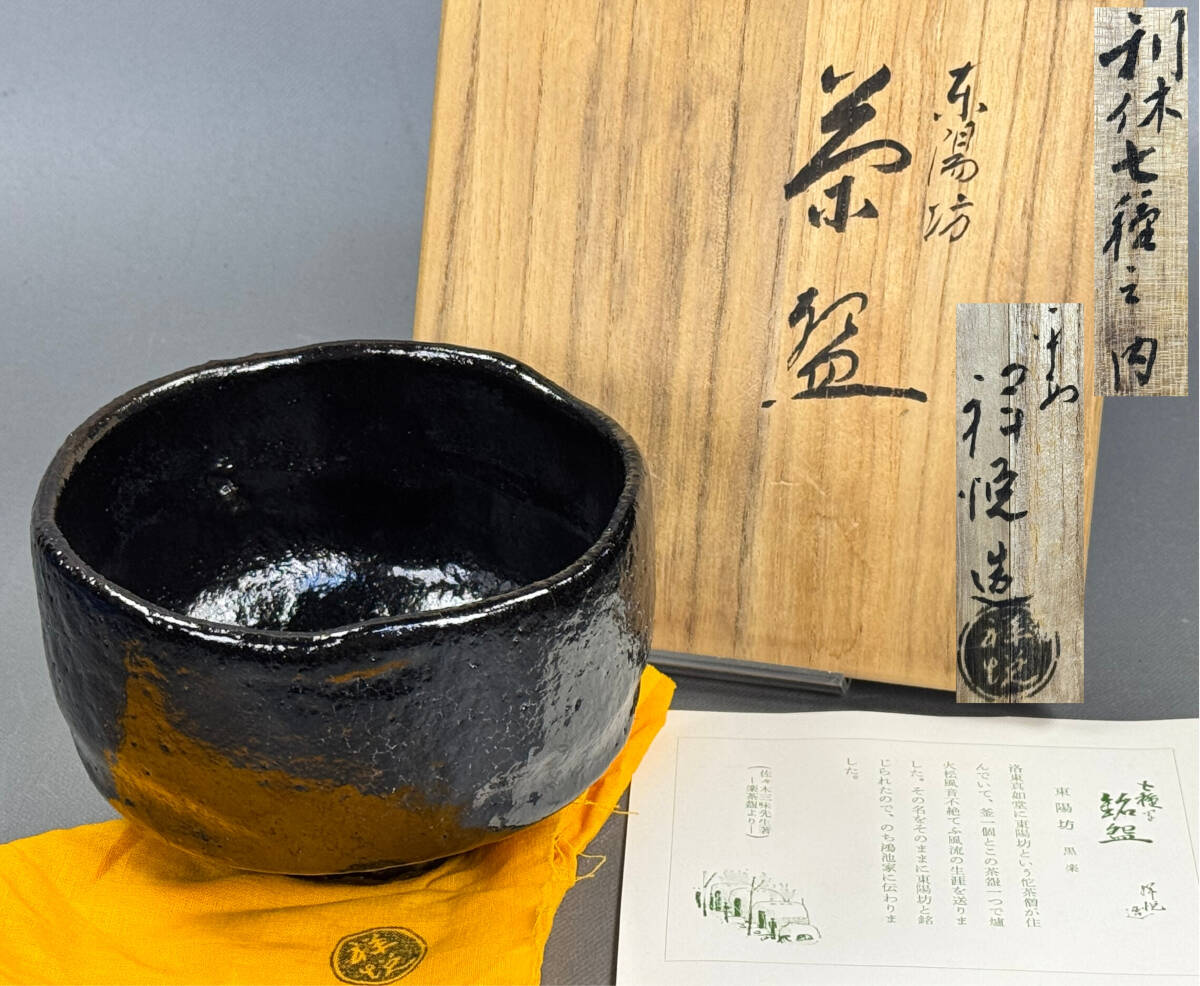 利休七種之内
東陽坊
茶盌
祥悦造
祥悦
七種
銘盌
祥悦
東陽坊 黒楽
洛東真如堂に東陽坊という佗茶僧が住
んでいて、釜一個とこの茶盌一つで爐
火松風音不絶てふ風流の生涯を送りま
した。その名をそのままに東陽坊と銘
じられたので、のち鴻池家に伝わりま
した。
(佐々木三味先生著
―楽茶盌より―)
祥悦